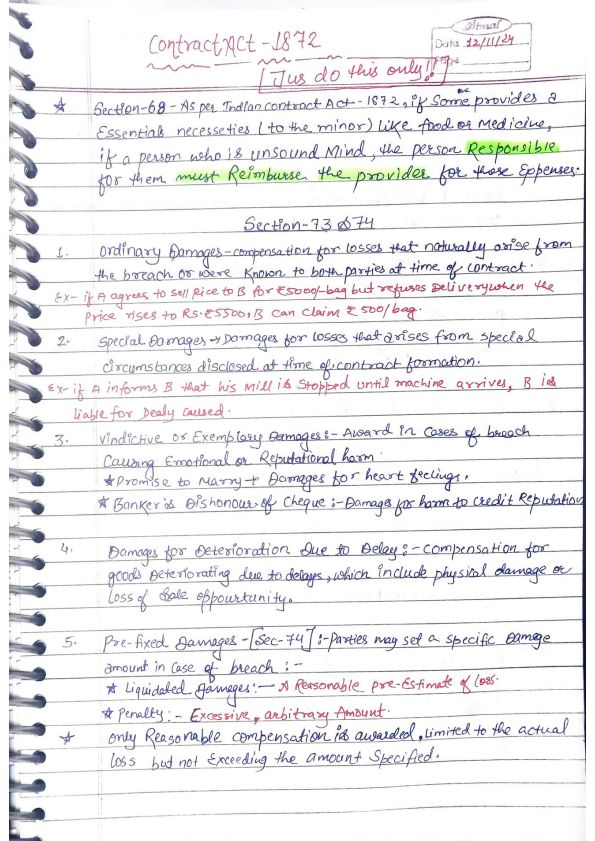 Atmal
Contract Act - 1872
Date 12/11/24
Jus do this only!!
☆ Section-68 - As per Indian contract Act - 1872, if Some one provides a
Essentials necesseties (to the minor) like food or Medicine,
if a person who is unsound Mind, the person Responsible
for them must Reimburse the provider for those Expenses.
Section-73 & 74
1. Ordinary Damages - compensation for losses that naturally arise from
the breach or were known to both parties at time of contract.
Ex- if A agrees to sell rice to B for ₹5000/-bag but refuses Delivery when the
Price rises to RS.₹5500, B can claim ₹ 500/bag.
2. Special Damages → Damages for losses that arises from special
circumstances disclosed at time of contract formation.
Ex- if A informs B that his Mill is Stopped until machine arrives, B is
liable for Dealy caused.
3. Vindictive or Exemplary Damages:- Award in cases of breach
Causing Emotional or Reputational harm
★ Promise to Marry → Damages for heart feelings.
★ Banker is Dishonour of Cheque :- Damages for harm to credit Reputation
4. Damages for Deterioration Due to Delay :- compensation for
goods Deteriorating due to delays, which include physical damage or
Loss of Sale oppourtunity.
5. Pre-fixed Damages - [Sec-74] :- Parties may set a specific Damage
amount in Case of breach :-
★ Liquidated Damages :- A Reasonable pre-Estimate of loss.
★ Penalty :- Excessive, arbitrary Amount.
☆ only Reasonable compensation is awarded, limited to the actual
loss but not Exceeding the amount Specified.